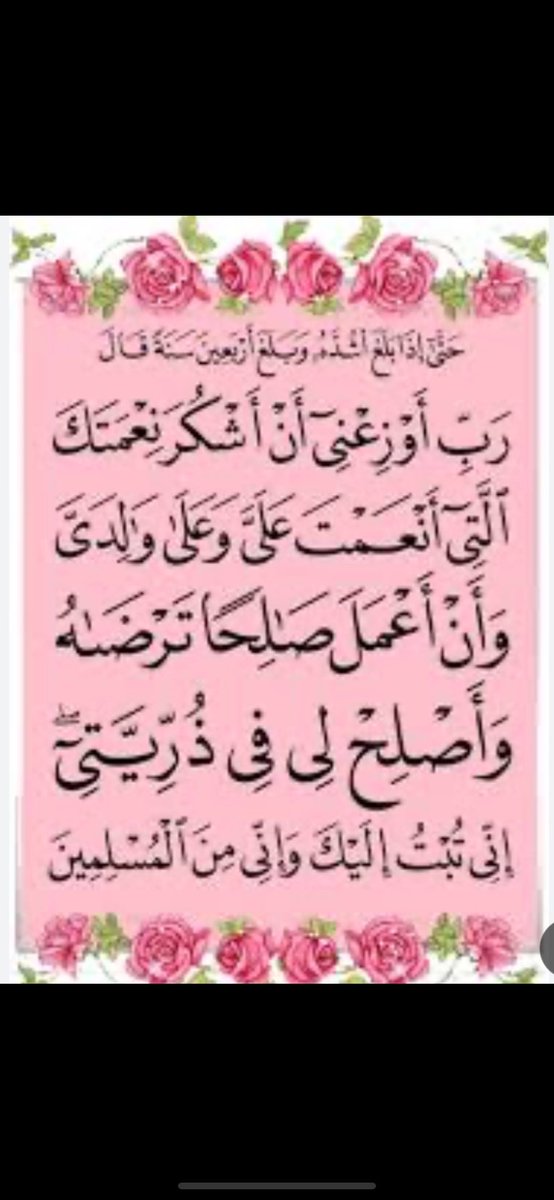 حَتَّىٰٓ إِذَا بَلَغَ أَشُدَّهُۥ وَبَلَغَ أَرْبَعِينَ سَنَةً قَالَ
رَبِّ أَوْزِعْنِىٓ أَنْ أَشْكُرَ نِعْمَتَكَ
ٱلَّتِىٓ أَنْعَمْتَ عَلَىَّ وَعَلَىٰ وَٰلِدَىَّ
وَأَنْ أَعْمَلَ صَٰلِحًا تَرْضَىٰهُ
وَأَصْلِحْ لِى فِى ذُرِّيَّتِىٓ ۖ
إِنِّى تُبْتُ إِلَيْكَ وَإِنِّى مِنَ ٱلْمُسْلِمِينَ